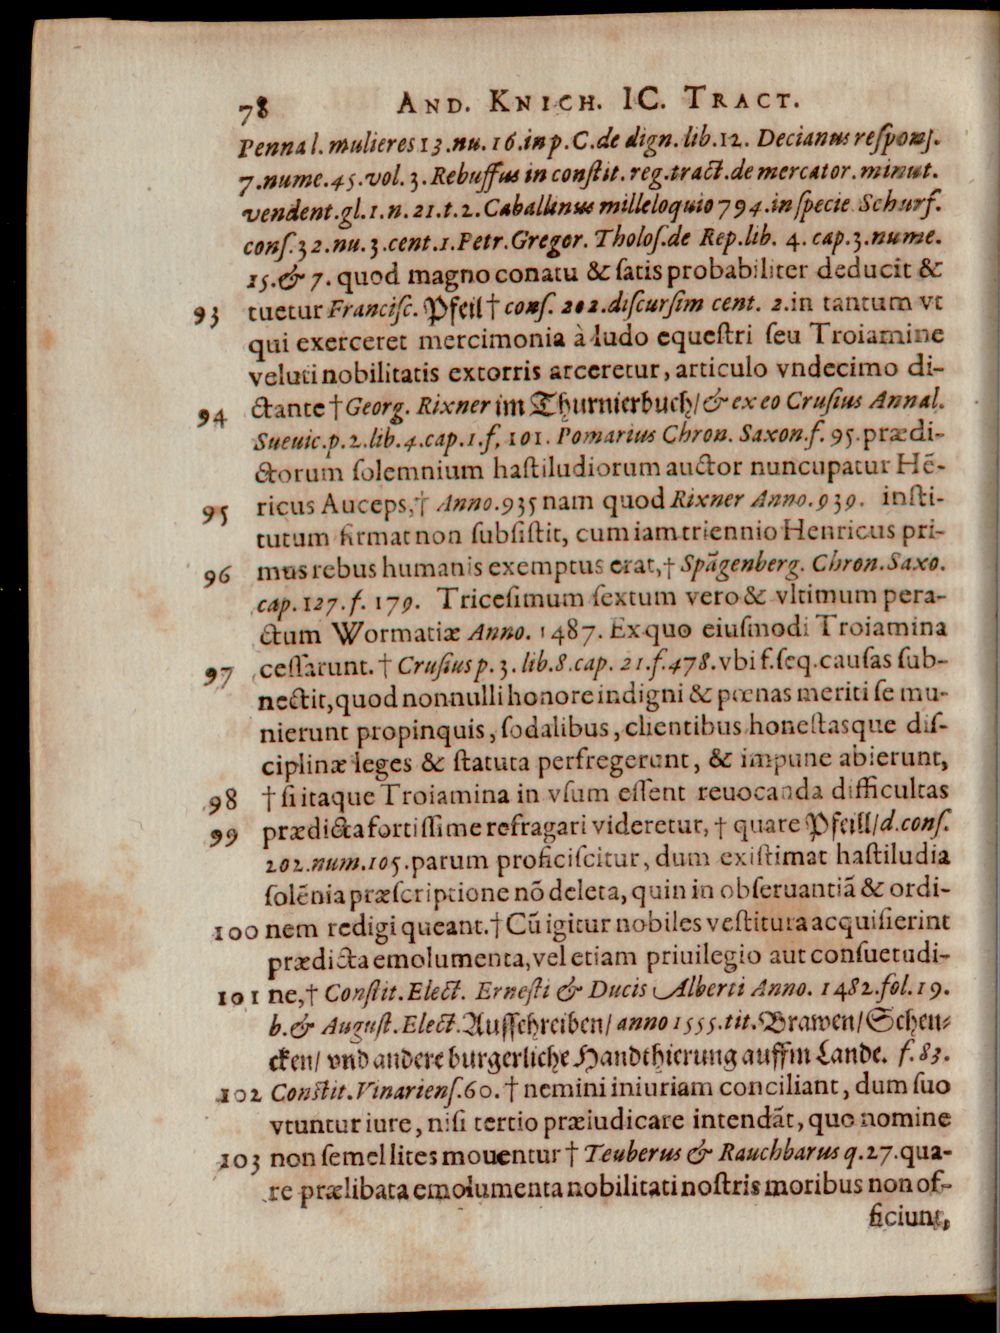 78 AND. KNICH. IC. TRACT.
Penna l. mulieres 13. nu. 16. in p. C. de dign. lib. 12. Decianus respons.
7. nume. 45. vol. 3. Rebuffus in constit. reg. tract. de mercator. minut.
vendent. gl. 1. n. 21. t. 2. Caballinus milleloquio 794. in specie Schurf.
cons. 32. nu. 3. cent. 1. Petr. Gregor. Tholos. de Rep. lib. 4. cap. 3. nume.
15. & 7. quod magno conatu & satis probabiliter deducit &
93 tuetur Francisc. Pfeil † cons. 202. discursim cent. 2. in tantum vt
qui exerceret mercimonia à ludo equestri seu Troiamine
veluti nobilitatis extorris arceretur, articulo vndecimo di-
94 ctante † Georg. Rixner im Thurnierbuch/ & ex eo Crusius Annal.
Sueuic. p. 2. lib. 4. cap. 1. f. 101. Pomarius Chron. Saxon. f. 95. prædi-
ctorum solemnium hastiludiorum auctor nuncupatur Hē-
95 ricus Auceps, † Anno. 935 nam quod Rixner Anno. 939. insti-
tutum firmat non subsistit, cum iam triennio Henricus pri-
96 mus rebus humanis exemptus erat, † Spāgenberg. Chron. Saxo.
cap. 127. f. 179. Tricesimum sextum vero & vltimum pera-
ctum Wormatiæ Anno. 1487. Ex quo eiusmodi Troiamina
97 cessarunt. † Crusius p. 3. lib. 8. cap. 21. f. 478. vbi f. seq. causas sub-
nectit, quod nonnulli honore indigni & pœnas meriti se mu-
nierunt propinquis, sodalibus, clientibus honestasque dis-
ciplinæ leges & statuta perfregerunt, & impune abierunt,
98 † si itaque Troiamina in vsum essent reuocanda difficultas
99 prædicta fortissime refragari videretur, † quare Pfeill/ d. cons.
202. num. 105. parum proficiscitur, dum existimat hastiludia
solēnia præscriptione nō deleta, quin in obseruantiā & ordi-
100 nem redigi queant. † Cū igitur nobiles vestitura acquisierint
prædicta emolumenta, vel etiam priuilegio aut consuetudi-
101 ne, † Constit. Elect. Ernesti & Ducis Alberti Anno. 1482. fol. 19.
b. & August. Elect. Ausschreiben/ anno 1555. tit. Brawen/ Schen-
cken/ vnd andere burgerliche Handthierung auffm Lande. f. 83.
102 Constit. Vinariens. 60. † nemini iniuriam conciliant, dum suo
vtuntur iure, nisi tertio præiudicare intendāt, quo nomine
103 non semel lites mouentur † Teuberus & Rauchbarus q. 27. qua-
re prælibata emolumenta nobilitati nostris moribus non of-
ficiunt,